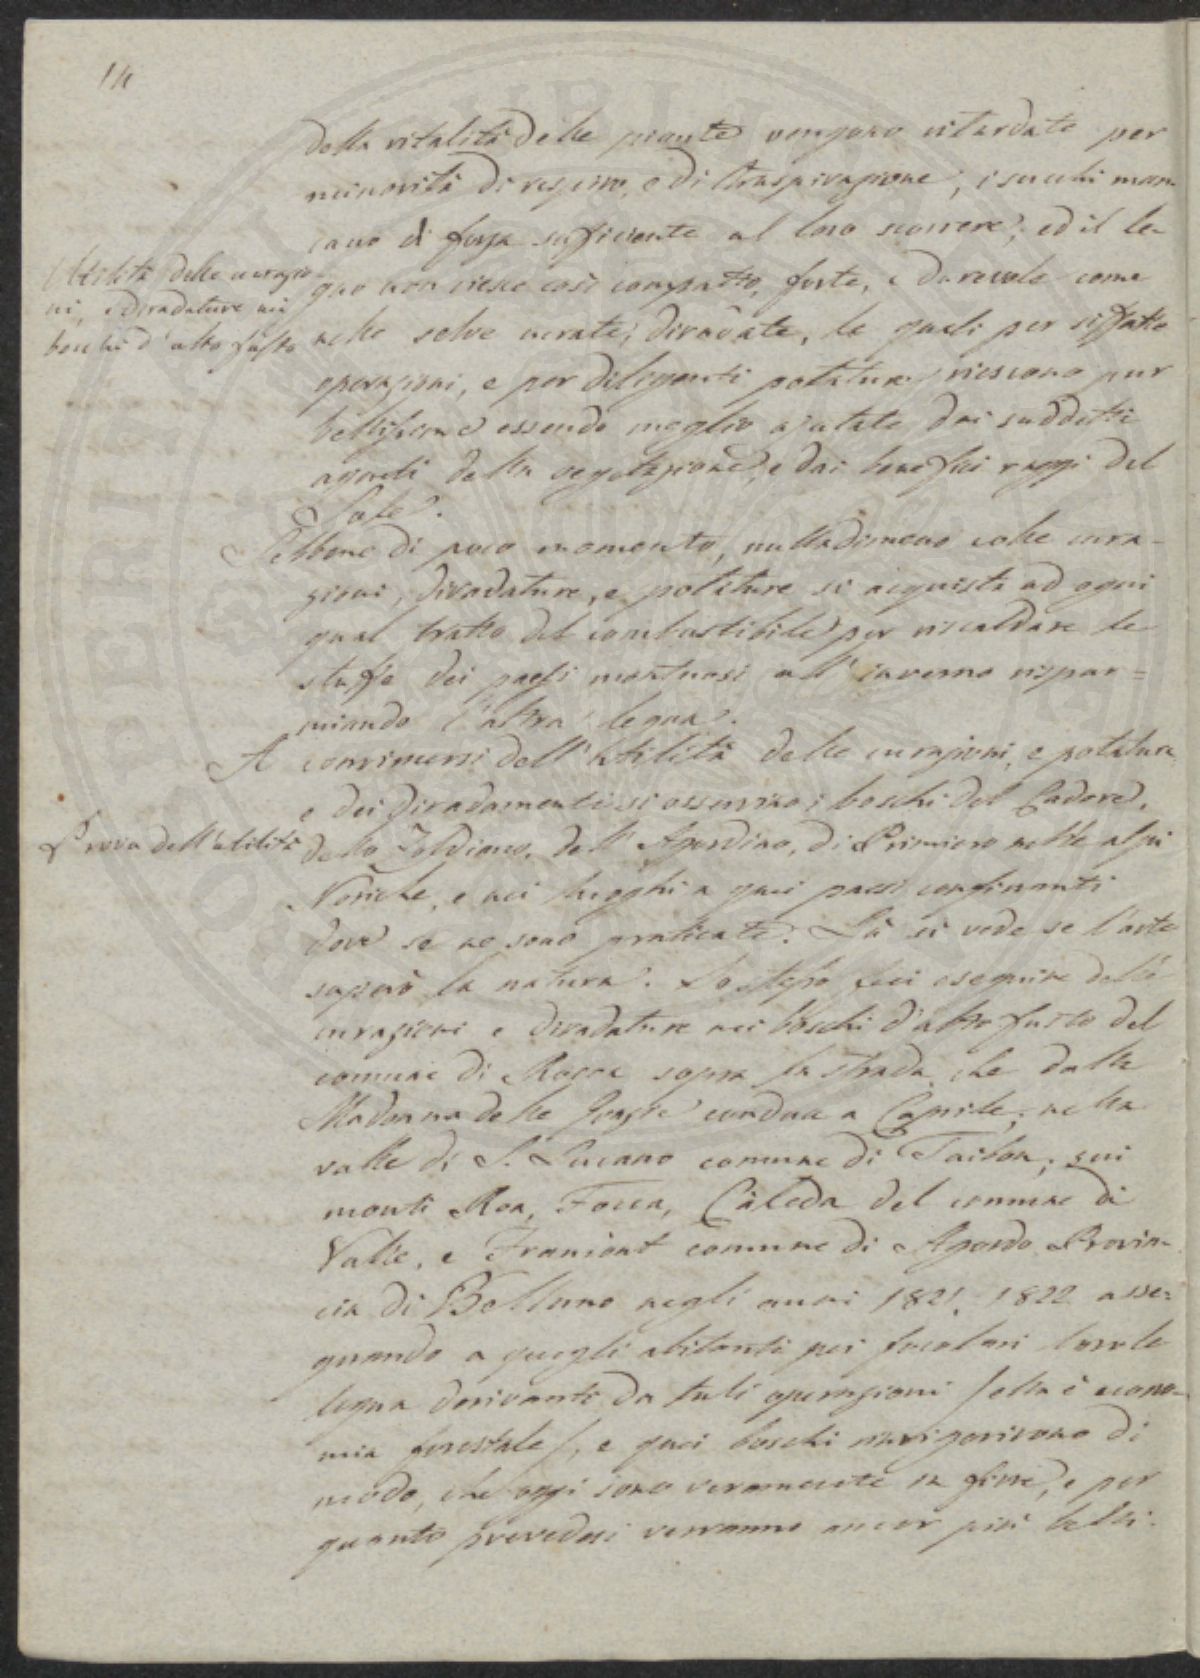 14
della vitalità delle piante vengono ritardate per
minorità di respiro, e di traspirazione, i succhi man-
cano di forza sufficiente al loro scorrere, ed il le-
Utilità delle curagio-
ni, e diradature nei
boschi d'alto fusto
gno non riesce così compatto, forte, e durevole come
nelle selve curate, diradate, le quali per siffatte
operazioni, e per diligenti potature riescono pur
bellissime essendo meglio ajutate dai suddetti
agenti della vegetazione, e dai benefici raggi del
Sole.
Sebbene di poco momento, nulladimeno colle cura-
gioni, diradature, e politure si acquista ad ogni
qual tratto del combustibile per riscaldare le
stuffe dei paesi montuosi all'inverno rispar=
miando l'altra legna.
A convincersi dell'utilità delle curagioni, e potature
e dei diradamenti si osservino i boschi del Cadore,
Prova dell'utilità
dello Zoldiano, dell'Agordino, di Primiero nelle alpi
Noriche, e nei luoghi a quei paesi confinanti
dove se ne sono praticate. Là si vede se l'arte
superò la natura. Io stesso feci eseguire delle
curagioni e diradature nei boschi d'alto fusto del
comune di Rocca sopra la strada che dalla
Madonna delle Grazie conduce a Caprile, nella
valle di S. Lucano comune di Taibon, sui
monti Roa, Focca, Càleda del comune di
Valle, e Framont comune di Agordo Provin-
cia di Belluno negli anni 1821, 1822 asse=
gnando a quegli abitanti pei focolari loro le
legna derivanti da tali operazioni /ella è econo-
mia forestale/, e quei boschi rinvigorirono di
modo, che oggi sono veramente in fiore, e per
quanto prevedesi verranno ancor più belli.